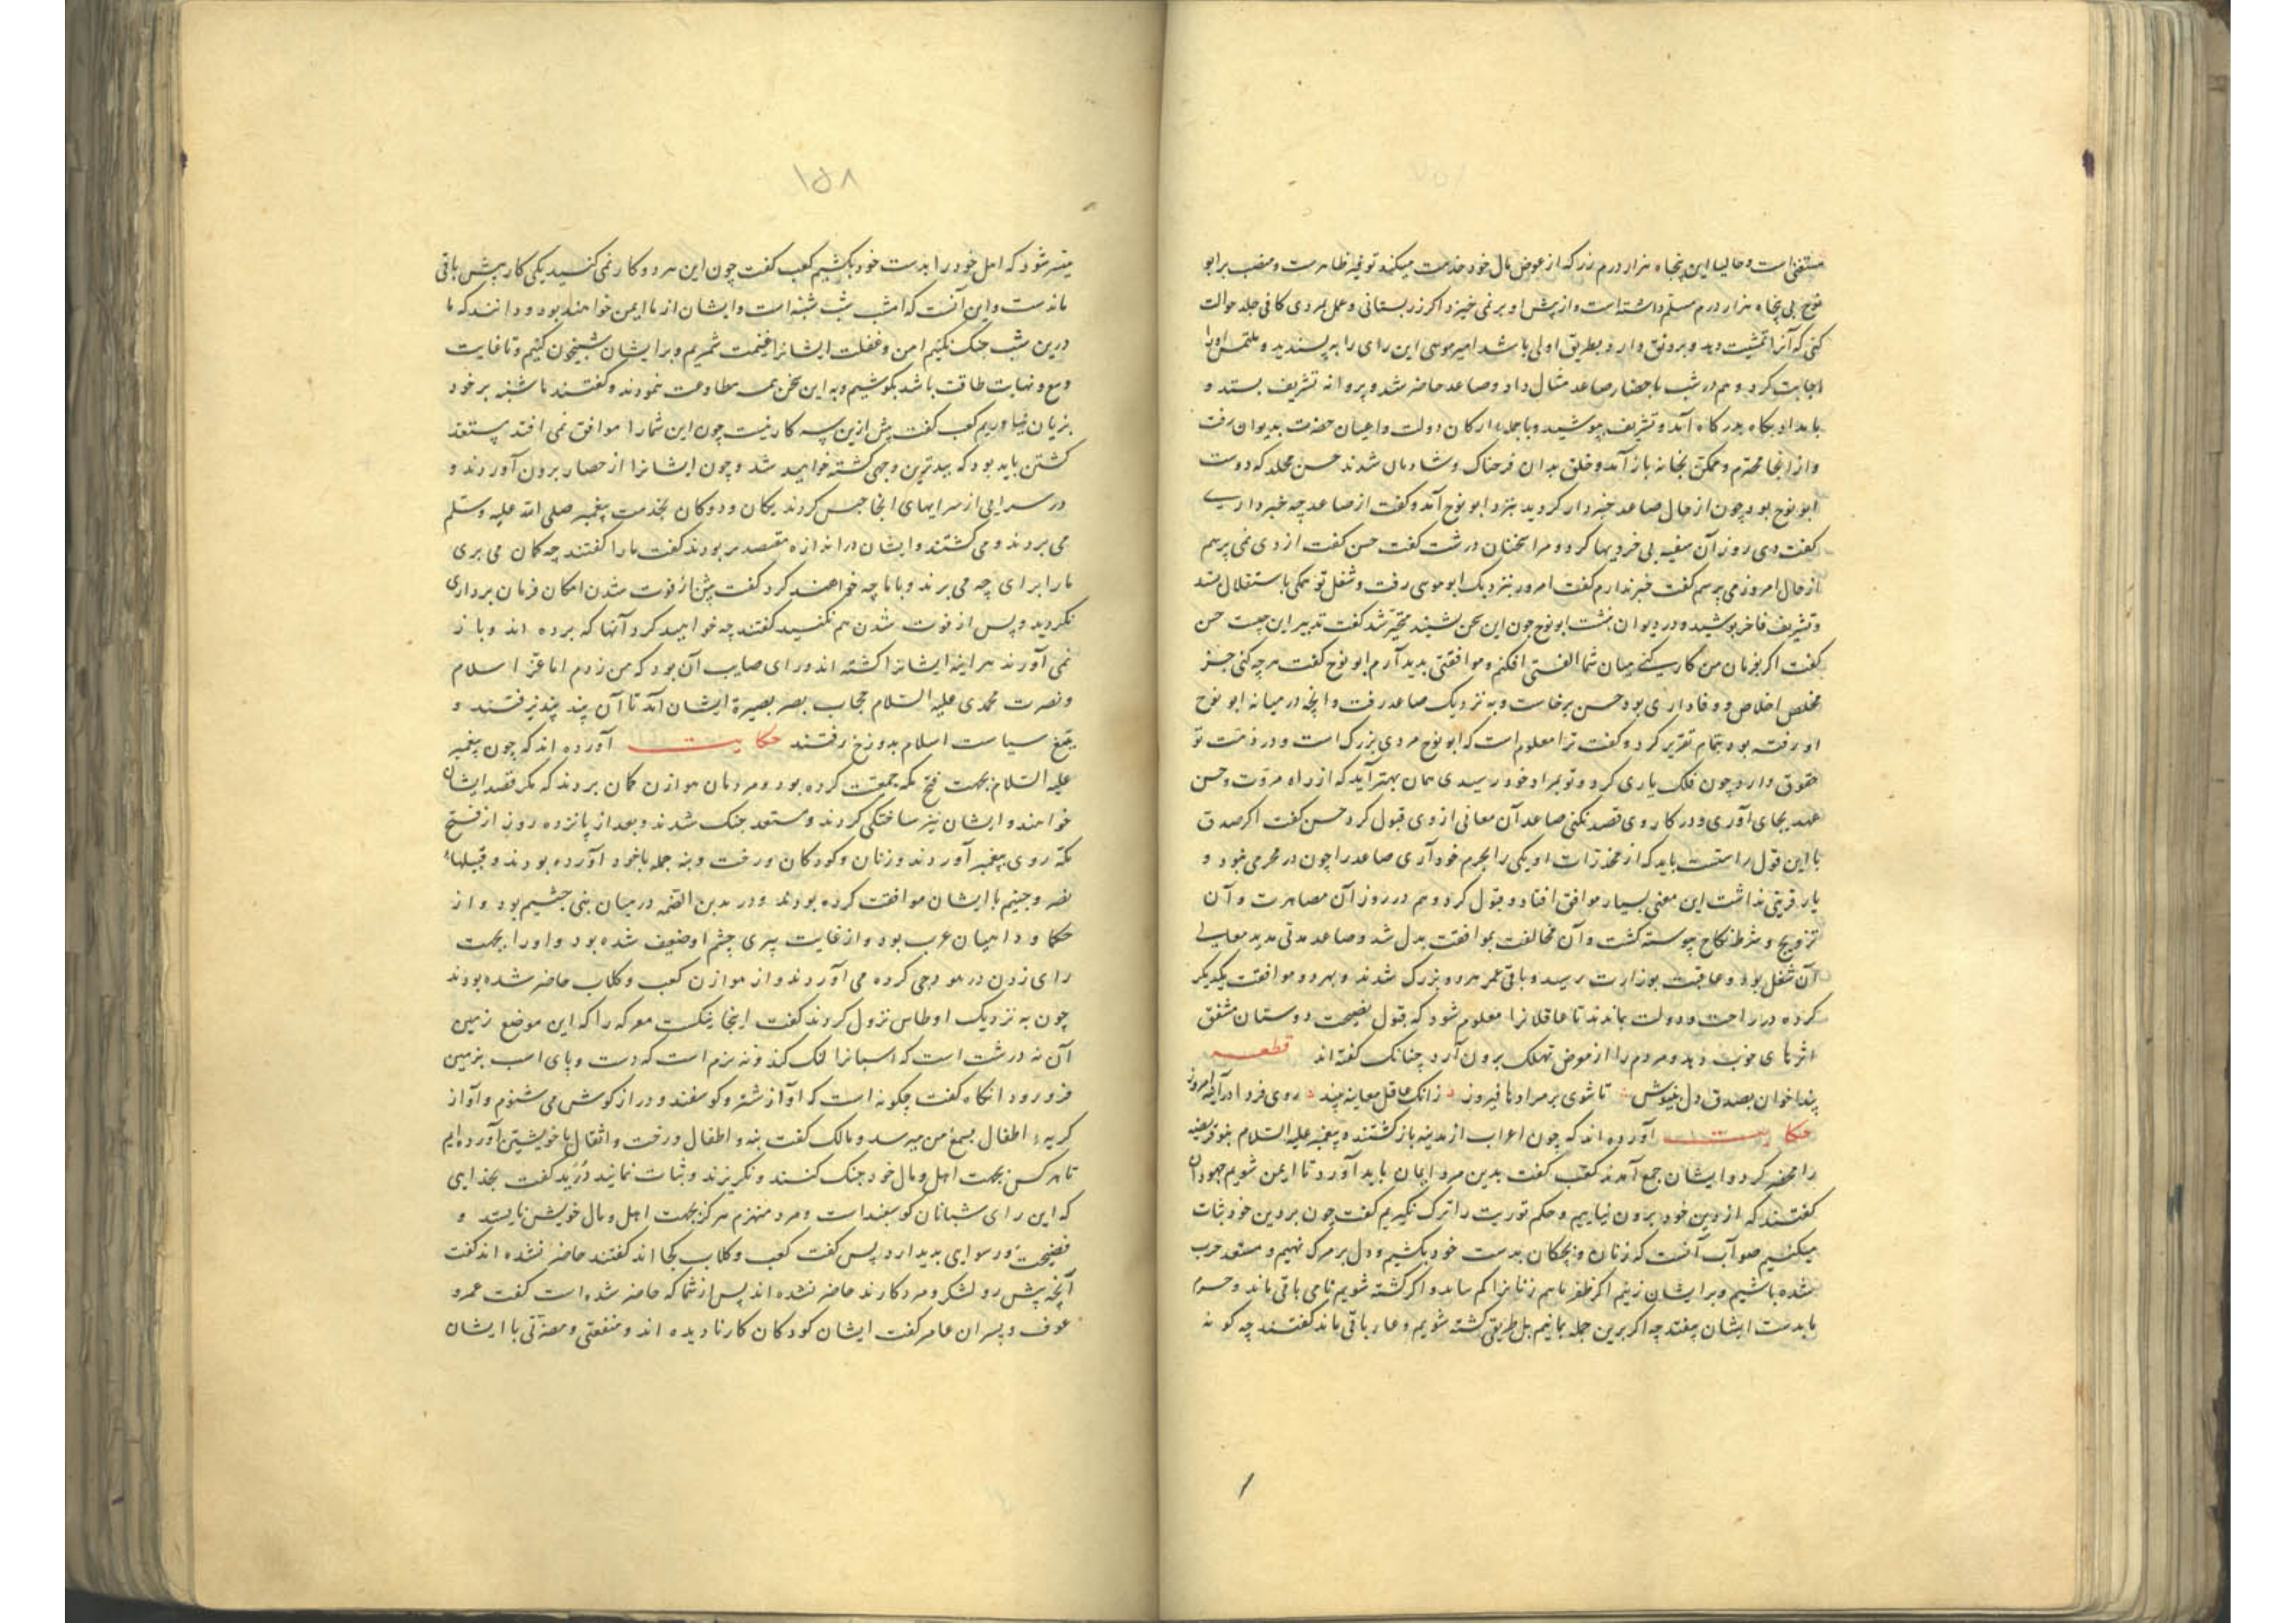 مستغنی است و حالیا این پنجاه هزار درم زر که از عوض مال خود خدمت میکند توفیر ظاهرست و منصب بر ابو
نوح بی پنجاه هزار درم مسلم داشته است و از پیش او بر نمی خیزد اگر زر بستانی و عمل بمردی کافی جلد حوالت
کنی که آنرا تمشیت دهد و برونق دارد بطریق اولی باشد امیر موسی این رای را بپسندید و ملتمس او را
اجابت کرد و هم در شب باحضار صاعد مثال داد و صاعد حاضر شد و پروانه تشریف بستد و
بامداد بگاه بدرگاه آمد و تشریف بپوشید و با جمله ارکان دولت و اعیان حضرت بدیوان رفت
و از انجا محترم و ممکن بخانه باز آمد و خلق بدان فرحناک و شادمان شدند حسن مخلد که دوست
ابو نوح بود چون از حال صاعد خبردار گردید بنزد ابو نوح آمد و گفت از صاعد چه خبر داری
گفت دی روز آن سفیه بی خردیها کرد و مرا سخنان درشت گفت حسن گفت از دی نمی پرسم
از حال امروز می پرسم گفت خبر ندارم گفت امروز بنزدیک ابو موسی رفت و شغل تو بمکی باستقلال بستد
و تشریف فاخر پوشیده و در دیوان بنشست ابو نوح چون این سخن بشنید متحیر شد گفت تدبیر این چیست حسن
گفت اگر بفرمان من کار کنی میان شما الفتی افکنم و موافقتی پدید آرم ابو نوح گفت هر چه کنی جز
مخلص اخلاص و وفاداری بود حسن برخاست و به نزدیک صاعد رفت و آنچه در میانه ابو نوح
او رفته بود بتمام تقریر کرد و گفت ترا معلوم است که ابو نوح مردی بزرگ است و در ذمت تو
حقوق دارد چون فلک یاری کرد و تو بمراد خود رسیدی همان بهتر آید که از راه مروت و حسن
عهد بجای آوری و در کار وی قصد نکنی صاعد آن معانی از وی قبول کرد حسن گفت اگر صدق
با این قول راستست باید که از مخدرات او یکی را بحرم خود آری صاعد را چون در محرمی نبود و
یار و قرینی نداشت این معنی بسیار موافق افتاد و قبول کرد و هم در روز آن مصاهرت و آن
تزویج و شرط نکاح پیوسته گشت و آن مخالفت بموافقت بدل شد و صاعد مدتی مدید معالی
آن شغل بود و عاقبت بوزارت رسید و باقی عمر هر دو بزرگ شدند و بهر دو موافقت یکدیگر
کرده در راحت و دولت بماندند تا عاقلانرا معلوم شود که قبول نصیحت دوستان مشفق
اثرهای خوب دهد و مردم را از معرض تهلک برون آرد چنانک گفته اند قطعه
پند اخوان بصدق دل بنیوش تا شوی بر مرادها فیروز زانک عاقل معاینه بیند روی فردا در آینه امروز
حکایت آورده اند که چون اعراب از مدینه بازگشتند و پیغمبر علیه السلام بنو قریضه
را محضر کرد و ایشان جمع آمدند کعب گفت بدین مرد ایمان باید آورد تا ایمن شویم جهودان
گفتند که از دین خود برون نیاییم و حکم توریت را ترک نگیریم گفت چون بر دین خود ثبات
میکنیم صواب آنست که زنان و بچگان بدست خود بکشیم و دل بر مرگ نهیم و مستعد حرب
شده باشیم و بر ایشان زنیم اگر ظفر یابیم زنانرا کم ساید و اگر کشته شویم نامی باقی ماند و حرم
ما بدست ایشان نیفتد چه اگر برین جمله بمانیم بل طریق کشته شویم و عار باقی ماند گفتند چه گونه
۱۵۸
میسر شود که اهل خود را بدست خود بکشیم کعب گفت چون این هر دو کار نمی کنید یکی کار بیش باقی
ماندست و این آنست که امشب شب شنبه است و ایشان از ما ایمن خواهند بود و دانند که ما
درین شب جنگ نکنیم امن و غفلت ایشانرا غنیمت شمریم و بر ایشان شبیخون کنیم و تا غایت
وسع و نهایت طاقت باشد بکوشیم و به این سخن هم مطاوعت ننمودند و گفتند ما شنبه بر خود
بزیان نیاوریم کعب گفت پیش ازین سه کار نیست چون این شما را موافق نمی افتد پس مستعد
کشتن باید بود که ببدترین وجهی کشته خواهید شد و چون ایشانرا از حصار برون آوردند و
در سرایی از سرایهای انجا حبس کردند یکان و دوکان بخدمت پیغمبر صلی الله علیه و سلم
می بردند و می کشتند و ایشان در اندازه مقصد بر بودند کعب را گفتند چه گمان می بری
ما را برای چه می برند و با ما چه خواهند کرد گفت پیش از فوت شدن امکان فرمان برداری
نکردید و پس از فوت شدن هم نکنید گفتند چه خواهید کرد آنها که برده اند و باز
نمی آورند هر اینه ایشانرا کشته اند و رای صایب آن بود که من زدم اما عز اسلام
و نصرت محمدی علیه السلام حجاب بصر بصیرة ایشان آمد تا آن پند نپذیرفتند و
بتیغ سیاست اسلام بدوزخ رفتند حکایت آورده اند که چون پیغمبر
علیه السلام بجهت فتح مکه جمعیت کرده بود و مردمان هوازن گمان بردند که مگر قصد ایشان
خواهند و ایشان نیز ساختگی کردند و مستعد جنگ شدند و بعد از پانزده روز از فتح
مکه روی پیغمبر آوردند و زنان و کودکان و رخت و بنه جمله با خود آورده بودند و قبیلهاء
نصر و جشم با ایشان موافقت کرده بودند و درید بن الصمه در میان بنی جشیم بود و از
حکما و داهیان عرب بود و از غایت پیری چشم او ضعیف شده بود و او را بجهت
رای زدن در هودجی کرده می آوردند و از هوازن کعب و کلاب حاضر شده بودند
چون به نزدیک اوطاس نزول کردند گفت اینجا نیکست معرکه را که این موضع زمین
آن نه درشت است که اسبانرا لنگ کند و نه نرم است که دست و پای اسب بزمین
فرو رود آنگاه گفت چگونه است که آواز شتر و گوسفند و دراز گوش می شنوم و آواز
گریهٔ اطفال بسمع من میرسد و مالک گفت بنه و اطفال و رخت و اثقال با خویشتن آورده ایم
تا هر کس بجهت اهل و مال خود جنگ کنند و نگریزند و ثبات نمایند دُرَید گفت بخدایی
که این رای شبانان گوسفندست و مرد منهزم هرگز بجهت اهل و مال خویش نایستد و
فضیحت و رسوایی بدید آرد پس گفت کعب و کلاب کجا اند گفتند حاضر نشده اند گفت
آنچه پیش رو لشکر و مرد کارند حاضر نشده اند پس از شما که حاضر شده است گفت عمرو
عوف و پسران عامر گفت ایشان کودکان کار نادیده اند و منفعتی و مضرتی با ایشان